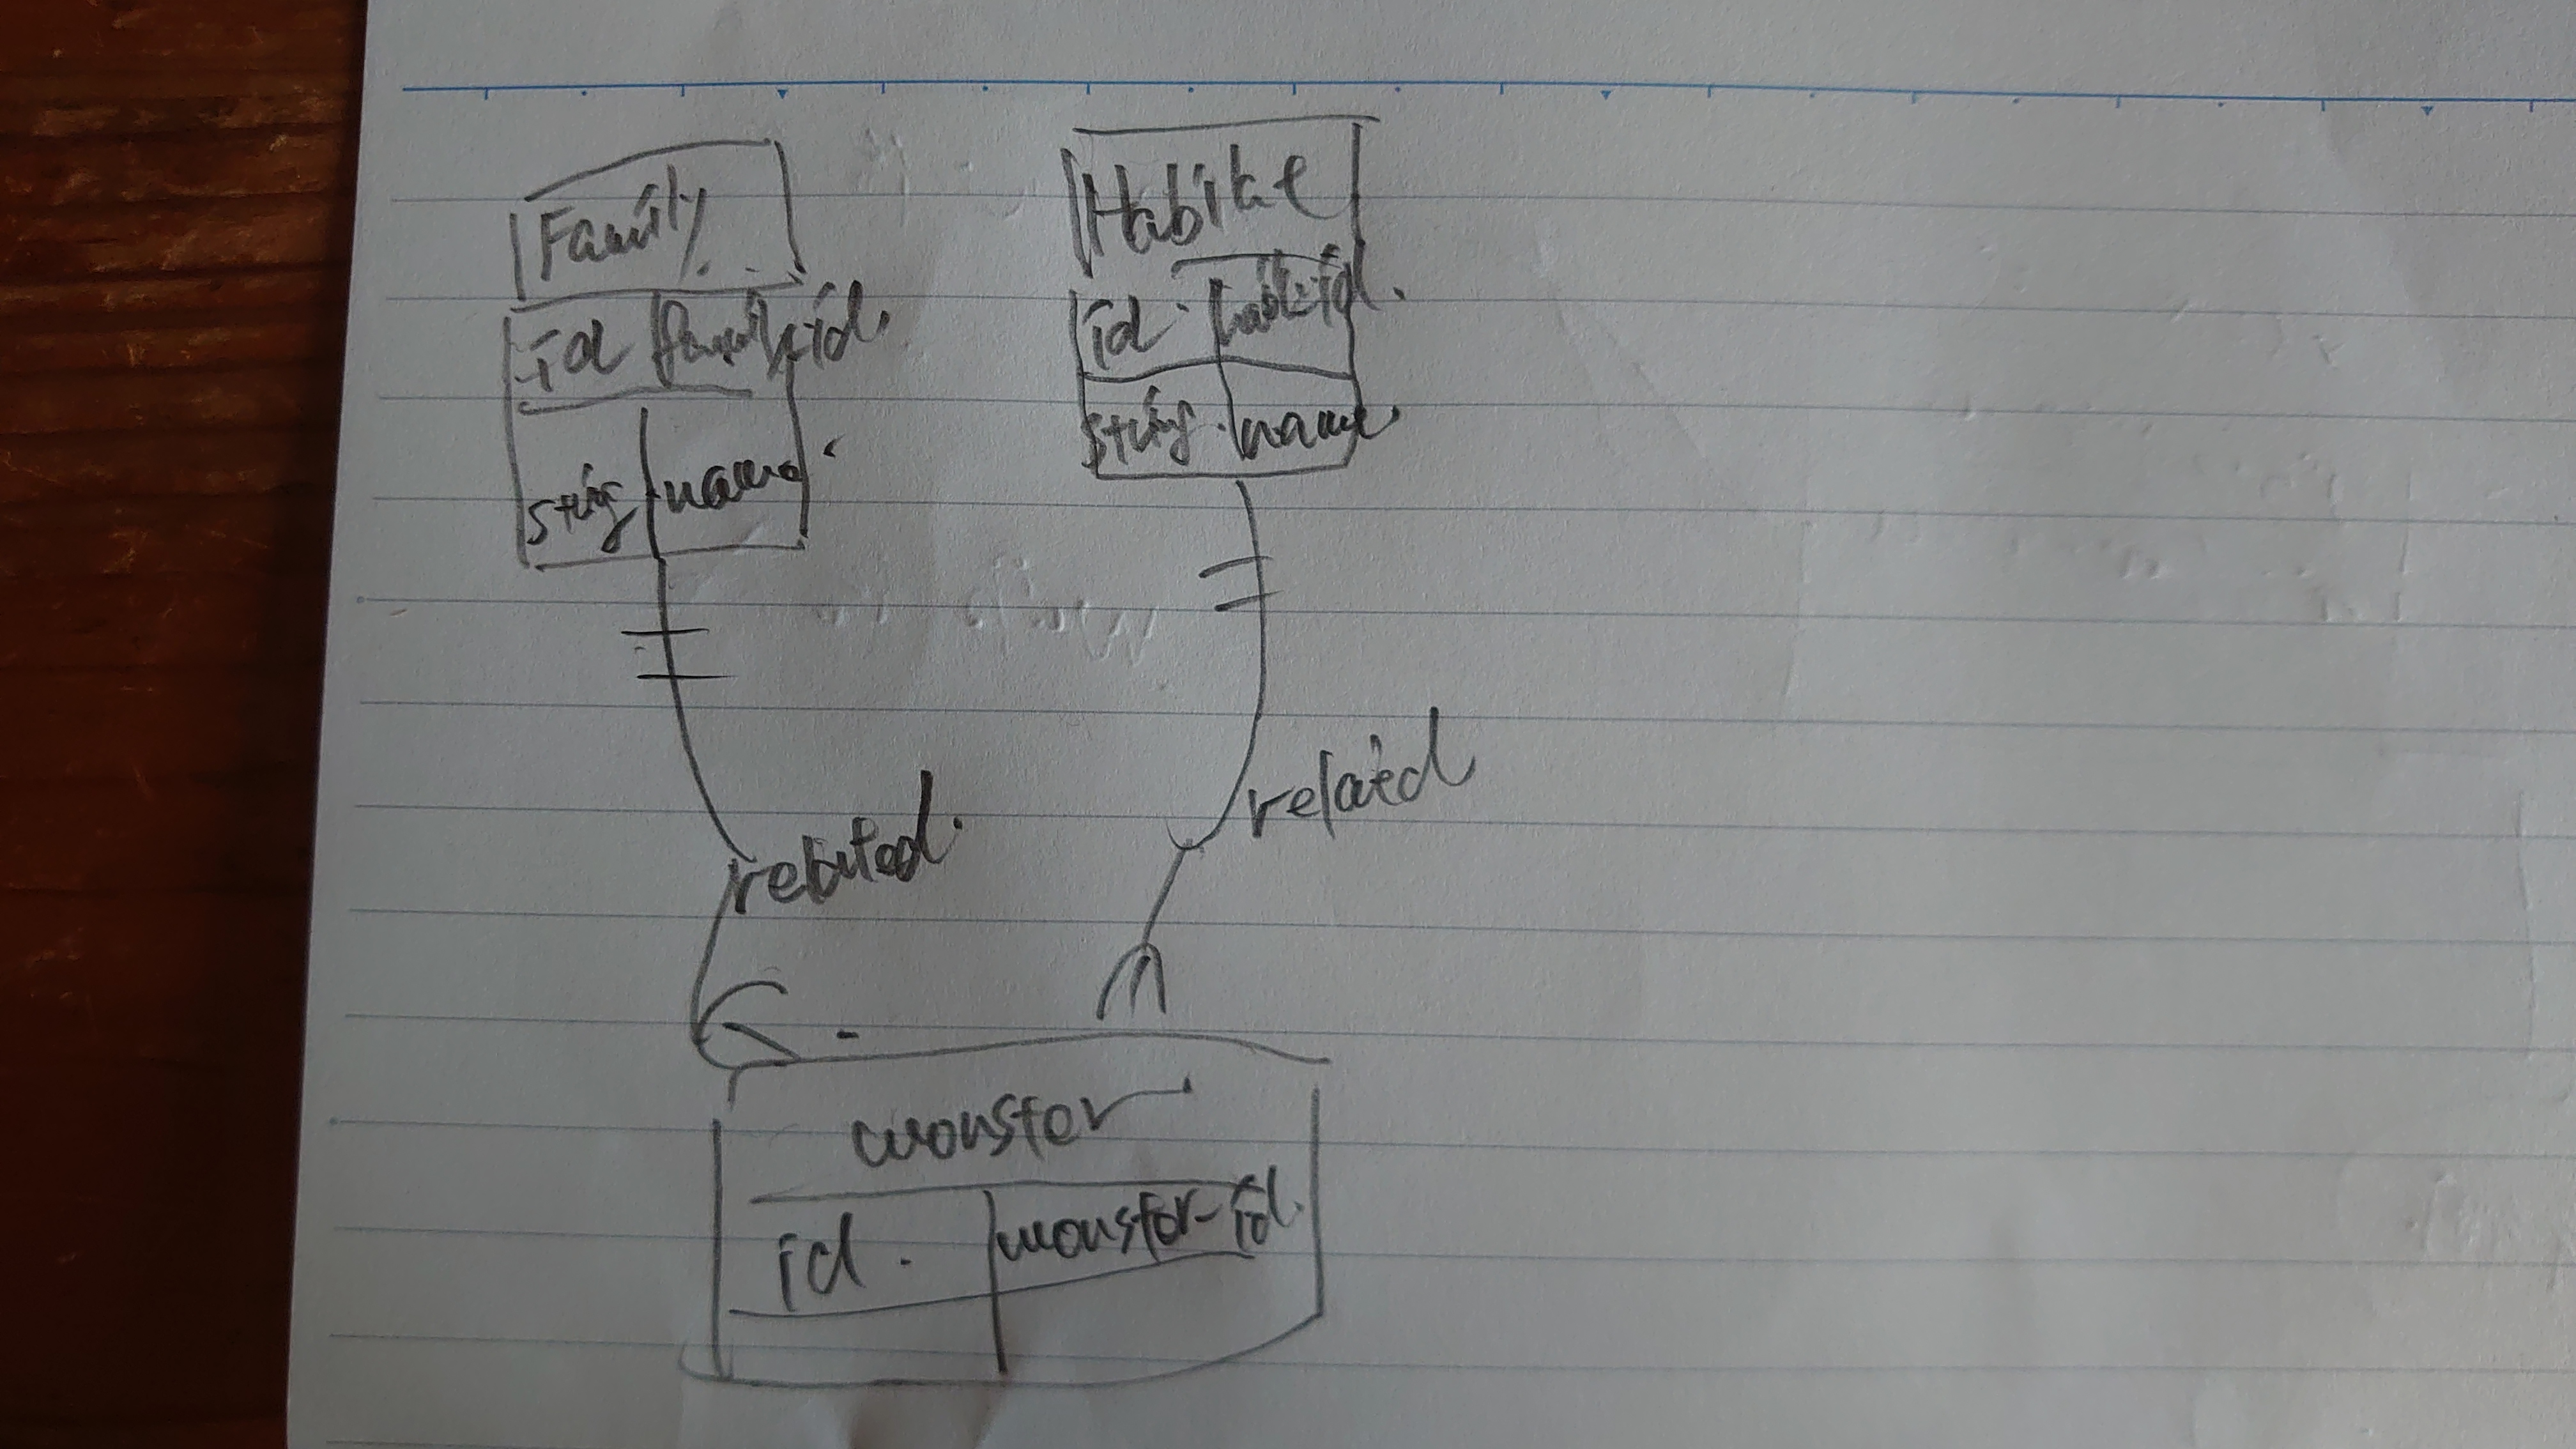 Family
id family id.
string name
Habitate
id. habit id.
string name
related.
related
monster
id. monster-id.